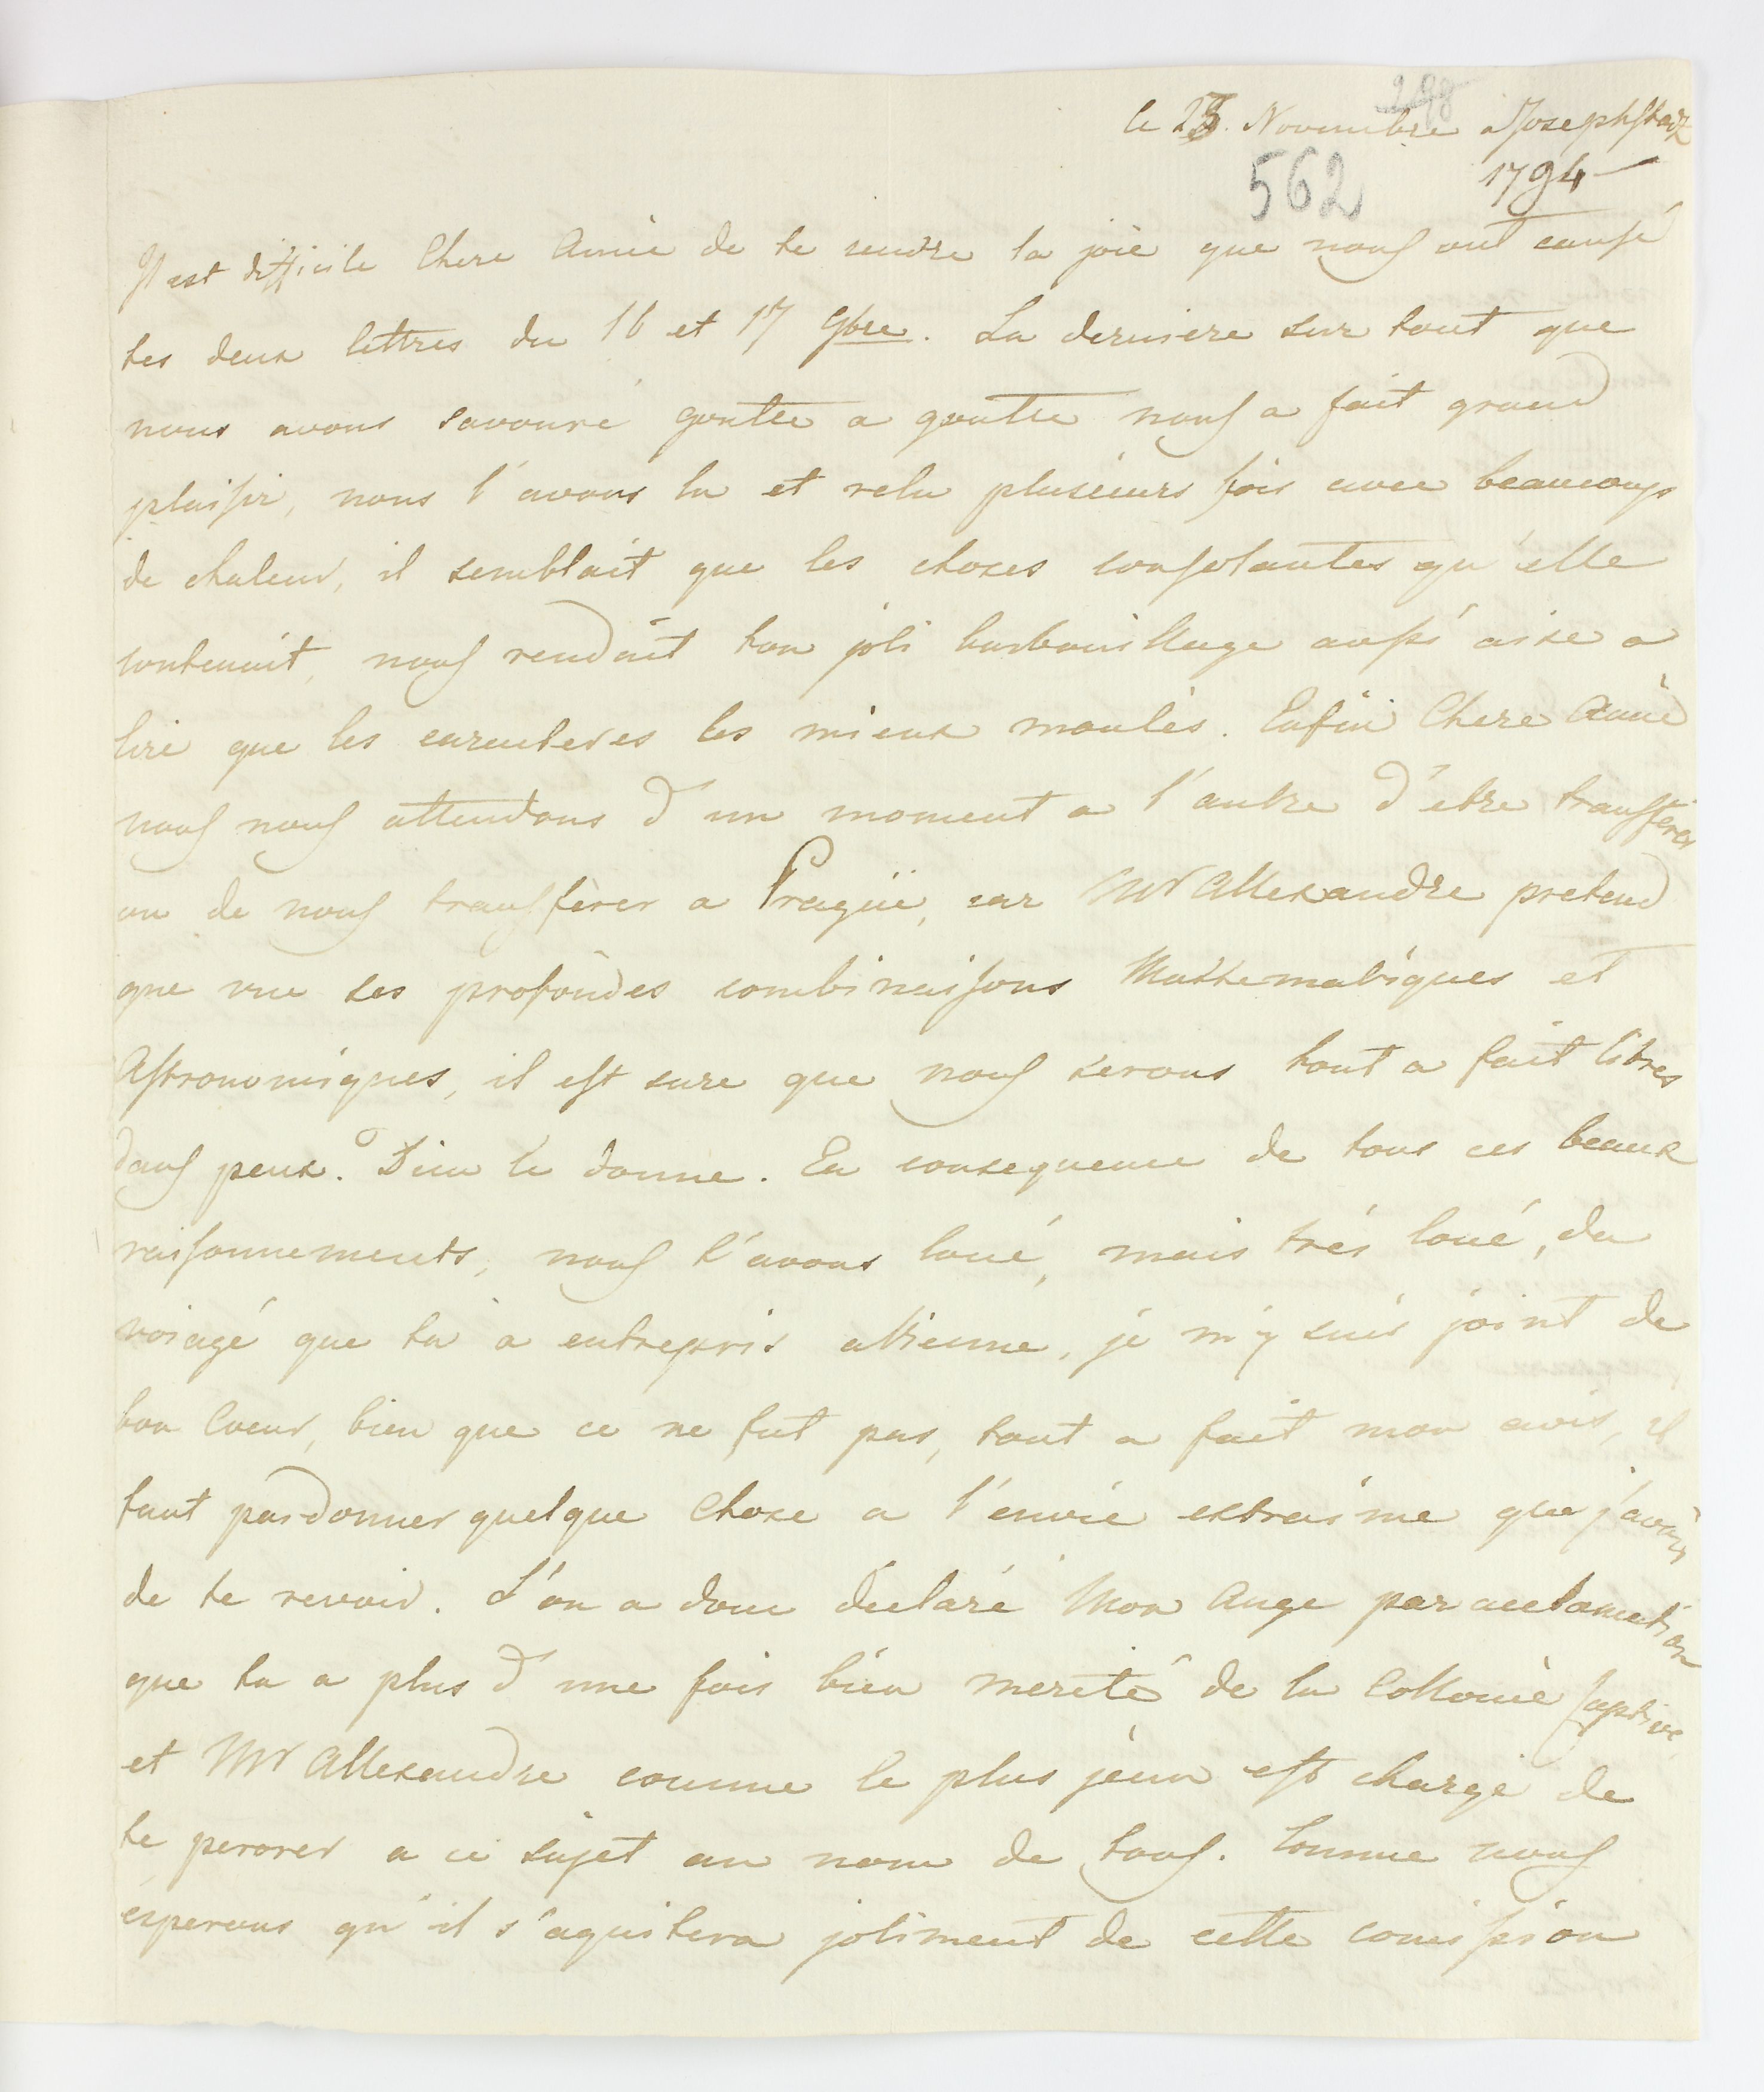 298
le 25. Novembre a Josephstadt
562
1794
Il est difficile Chere Amie de te rendre la joie que nous ont causé
tes deux lettres du 16 et 17 9bre. La derniere sur tout que
nous avons savouré goutte a goutte nous a fait grand
plaisir, nous l'avons lu et relu plusieurs fois avec beaucoup
de chaleur, il semblait que les choses consolantes qu'elle
contenait, nous rendait ton joli barbouillage aussi aise a
lire que les caracteres les mieux moulés. Enfin Chere Amie
nous nous attendons d'un moment a l'autre d'etre transferés
ou de nous transférer a Pragüe, car Mr Allexandre pretend
que vue ses profondes combinaisons Mathematiques et
Astronomiques, il est sure que nous serons tout a fait libres
dans peux. Dieu le donne. En consequence de tous ces beaux
raisonnements, nous t'avons loué, mais très loué, du
voiagé que tu a entrepris a Vienne, je m'y suis joint de
bon Coeur, bien que ce ne fut pas, tout a fait mon avis, il
faut pardonner quelque chose a l'envie extraisme que j'avais
de te revoir. L'on a donc déclaré Mon Ange par acclamation
que tu a plus d'une fois bien merité de la Collonie Captive,
et Mr Allexandre comme le plus jeun est chargé de
te perorer a ce sujet au nom de tous. Comme nous
esperons qu'il s'aquitera joliment de cette comission